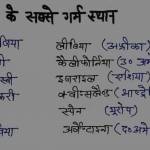 के सबसे गर्म स्थान
बिया लीबिया (अफ्रीका)
कैलीफोर्निया (उ० अम
इजराइल (एशिया)
क्वींसलैंड (आस्ट्रे
स्पेन (यूरोप)
अर्जेण्टाइना (द० अमे